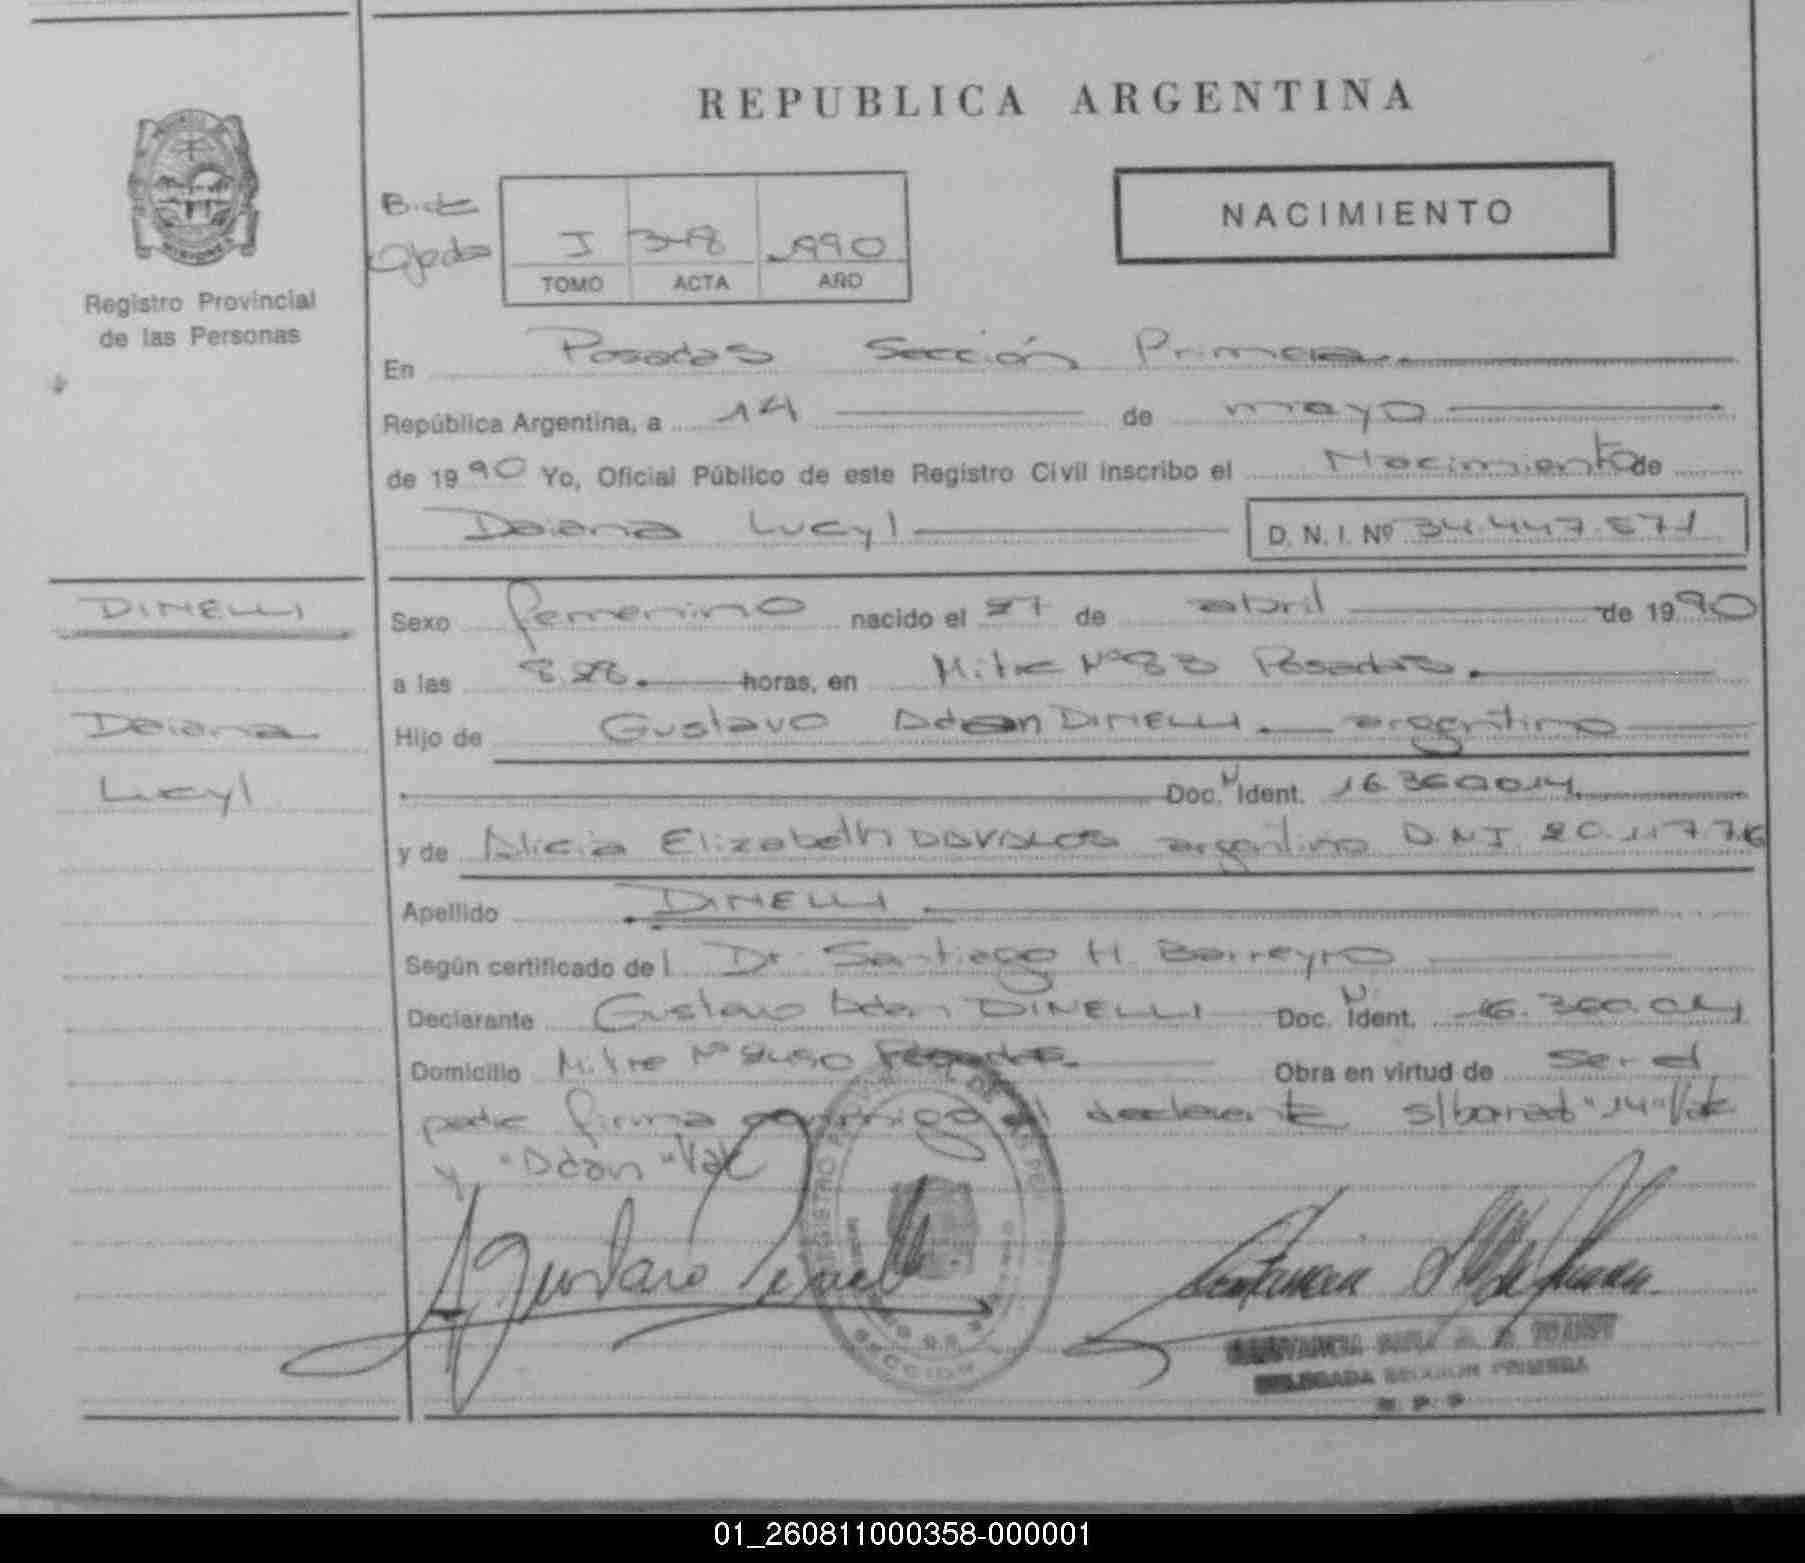 REPUBLICA ARGENTINA
NACIMIENTO
B. de
Ojeda
I 348 1990
TOMO ACTA AÑO
Registro Provincial
de las Personas
En Posadas Sección Primera
República Argentina, a 14 de mayo
de 1990 Yo, Oficial Público de este Registro Civil inscribo el Nacimiento de
Daiana Lucyl D. N. I. Nº 34.447.571
DINELLI
Daiana
Lucyl
Sexo femenino nacido el 27 de abril de 1990
a las 8.28 horas, en Mitre Nº 83 Posadas
Hijo de Gustavo Adan DINELLI argentino
Doc. N Ident. 16.360.014
y de Alicia Elizabeth DAVALOS argentina D.N.I. 20.117.716
Apellido DINELLI
Según certificado del Dr. Santiago H. Barreyro
Declarante Gustavo Adan DINELLI Doc. N Ident. 16.360.014
Domicilio Mitre Nº Posadas Obra en virtud de ser el
padre firma conmigo el declarante s/borrado "14" Vale
y "Adan" Vale
Gustavo Dinelli
DELEGADA SECCION PRIMERA
R. P. P
01_260811000358-000001